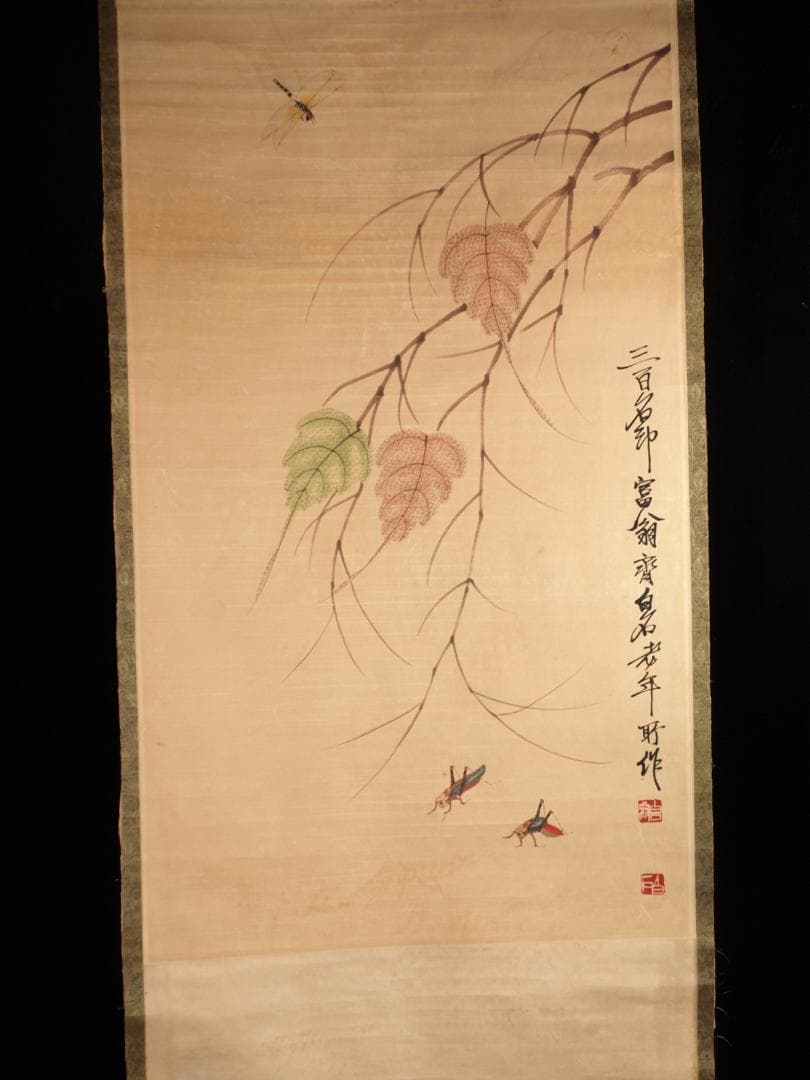 三百石印富翁齊白石老年所作
白石